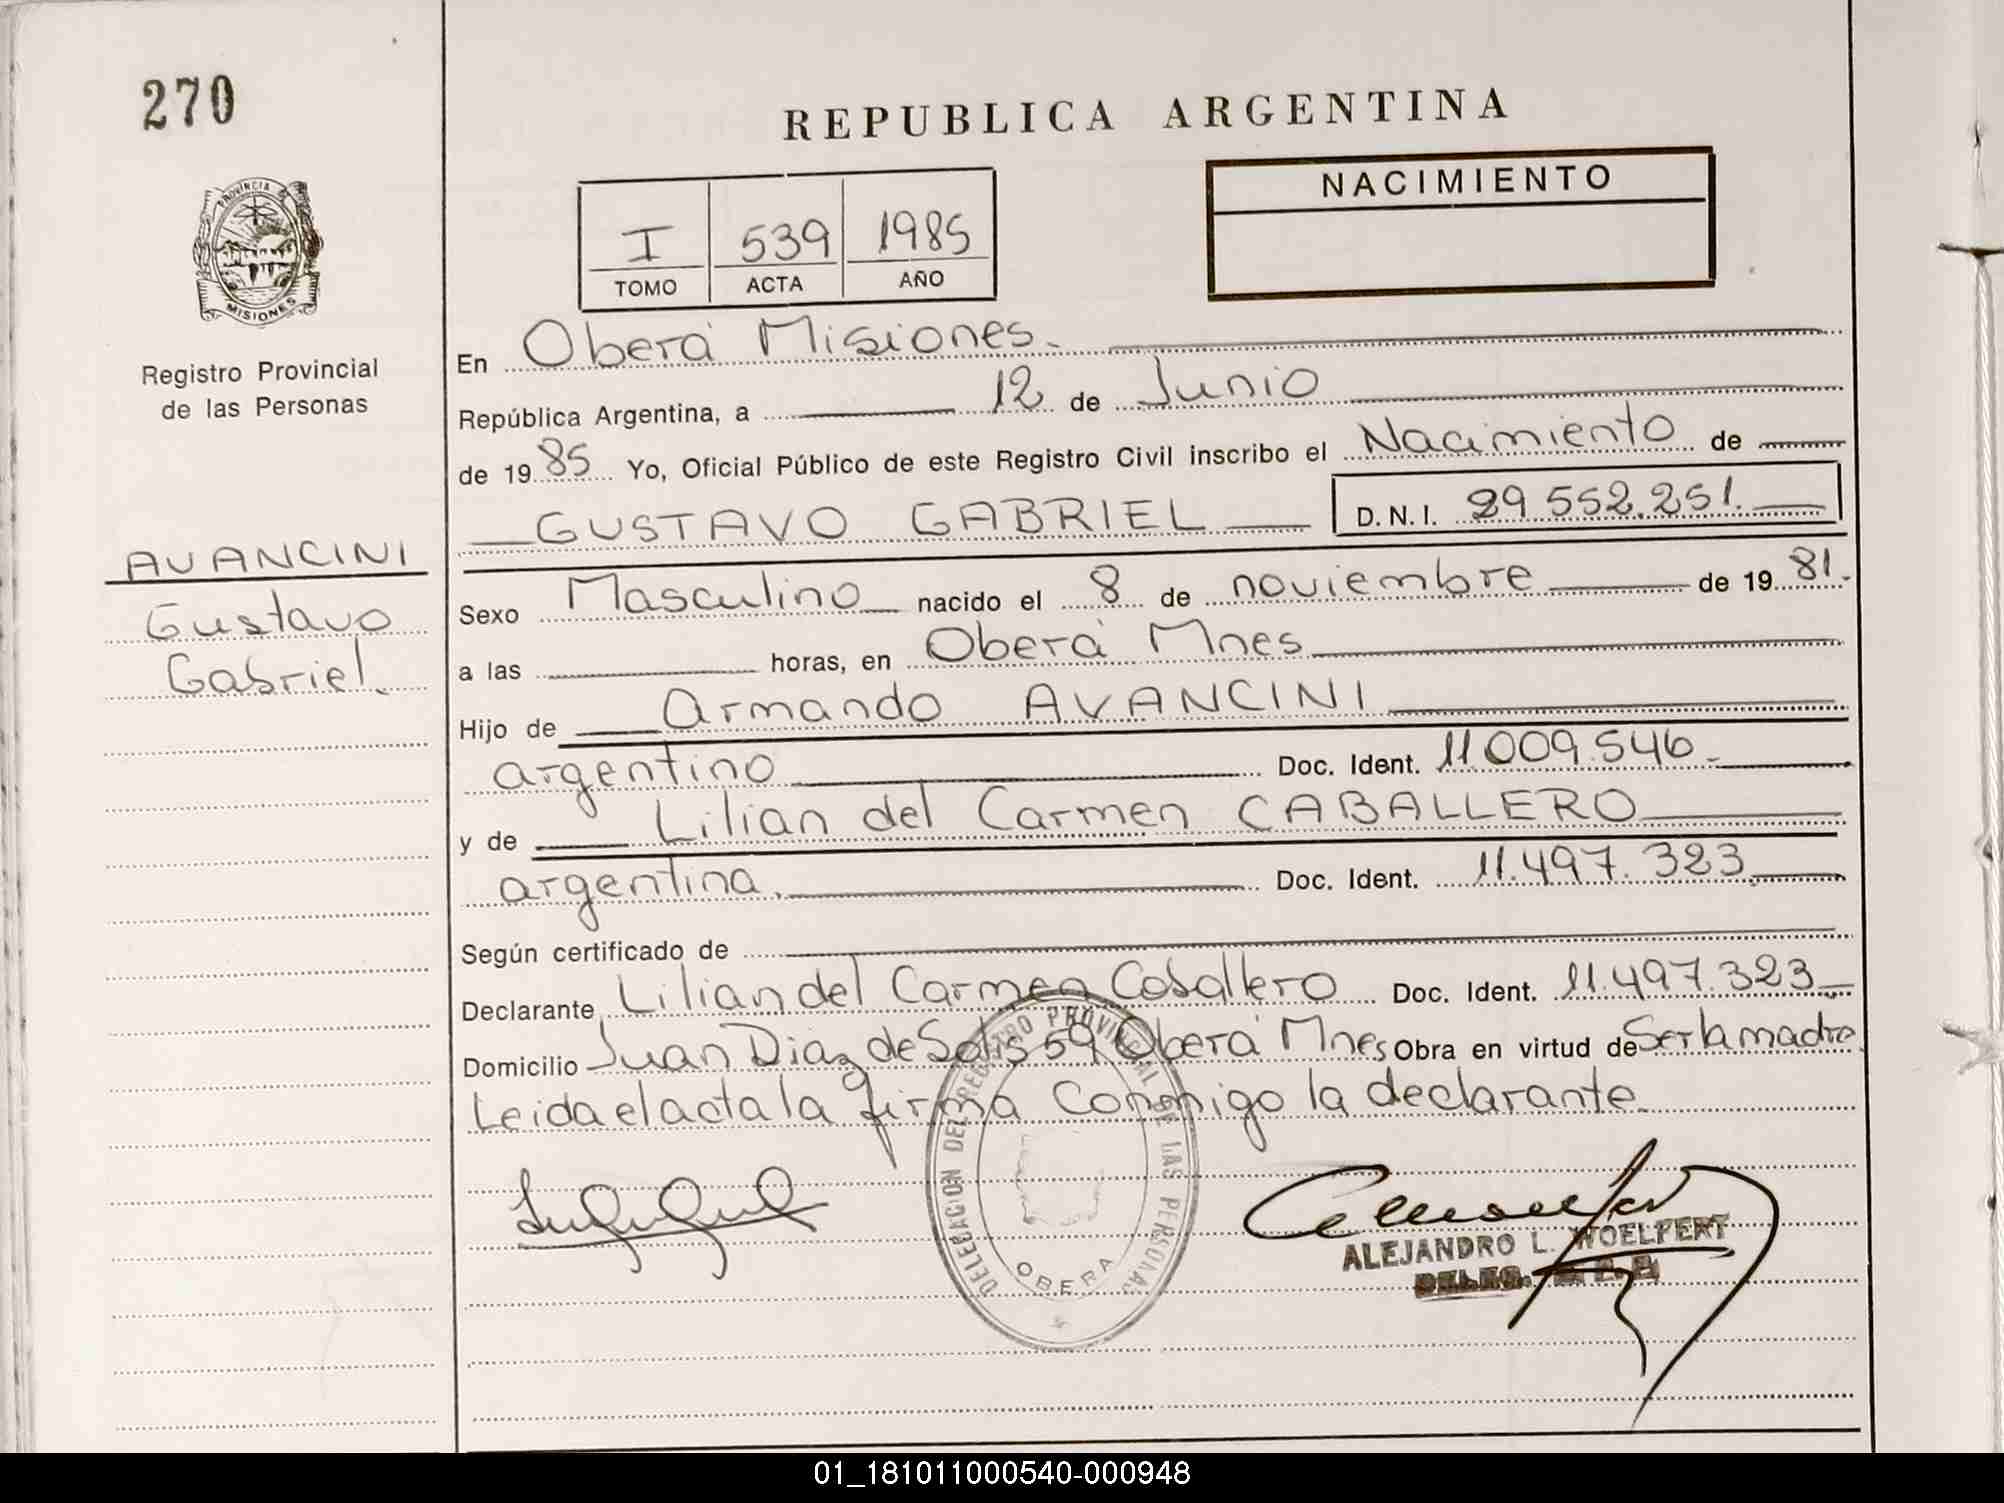 270
PROVINCIA DE MISIONES
Registro Provincial
de las Personas
AVANCINI
Gustavo
Gabriel.
REPUBLICA ARGENTINA
I 539 1985
TOMO ACTA AÑO
NACIMIENTO
En Oberá Misiones.
República Argentina, a 12 de Junio
de 1985 Yo, Oficial Público de este Registro Civil inscribo el Nacimiento de
GUSTAVO GABRIEL D.N.I. 29.552.251.
Sexo Masculino nacido el 8 de noviembre de 1981.
a las horas, en Oberá Mnes
Hijo de Armando AVANCINI
argentino Doc. Ident. 11.009.546.
y de Lilian del Carmen CABALLERO
argentina. Doc. Ident. 11.497.323
Según certificado de
Declarante Lilian del Carmen Caballero Doc. Ident. 11.497.323
Domicilio Juan Diaz de Solis 59 Oberá Mnes Obra en virtud de Ser la madre
Leida el acta la firma Conmigo la declarante.
DELEGACION DEL REGISTRO PROVINCIAL DE LAS PERSONAS
OBERA
ALEJANDRO L. WOELFERT
DELEG.
01_181011000540-000948